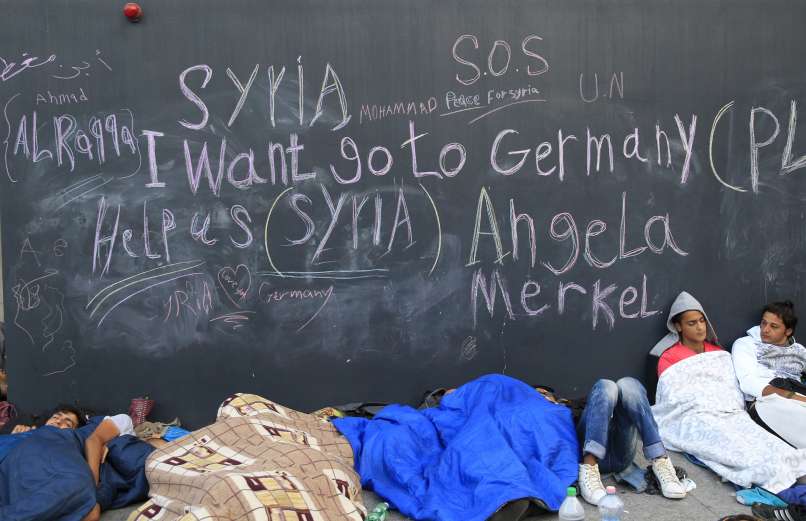 S.O.S
SYRIA MOHAMMAD Peace For syria U.N
Ahmad
ALRaqqa I Want go to Germany (PL
Help us (SYRIA) AngeLa
MerkeL
Love
Germany